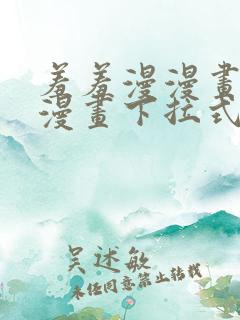 羞羞漫漫畫
漫畫下拉式
吴述敏
未经同意禁止转载